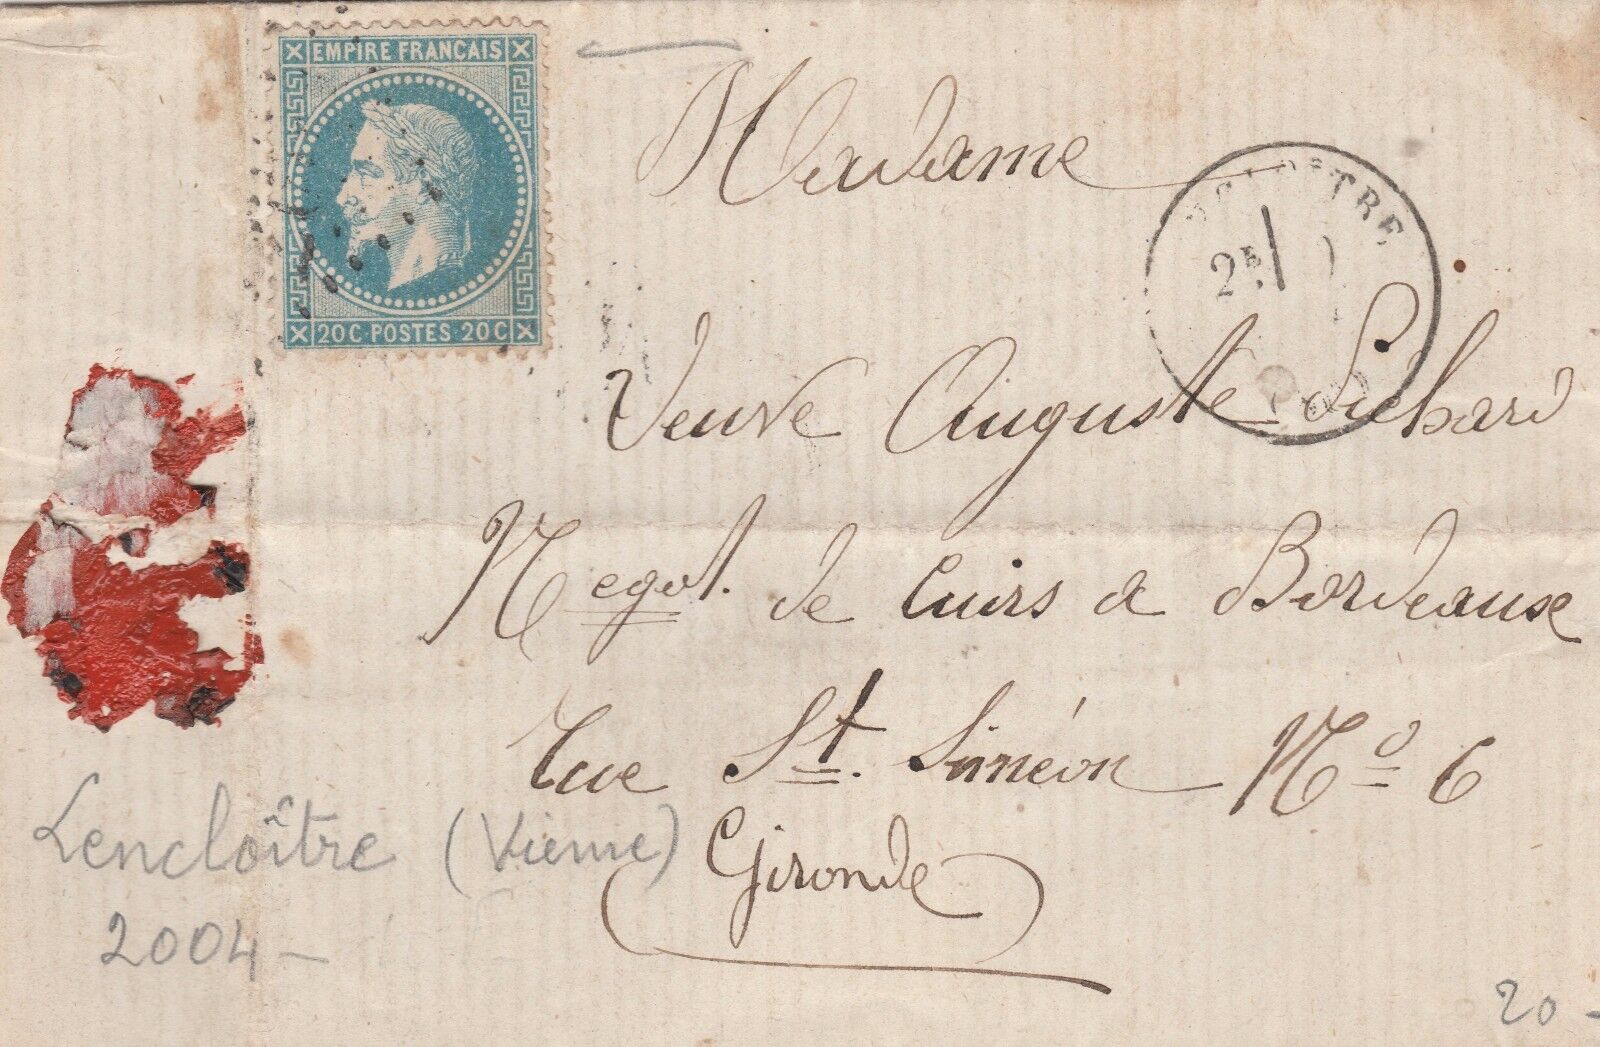 EMPIRE FRANÇAIS
20C POSTES 20C
Madame
2E
Veuve Auguste Pichard
Negot. de Cuirs a Bordeaux
Rue St. Siméon No 6
Gironde
Lencloître (Vienne)
2004 -
20 -